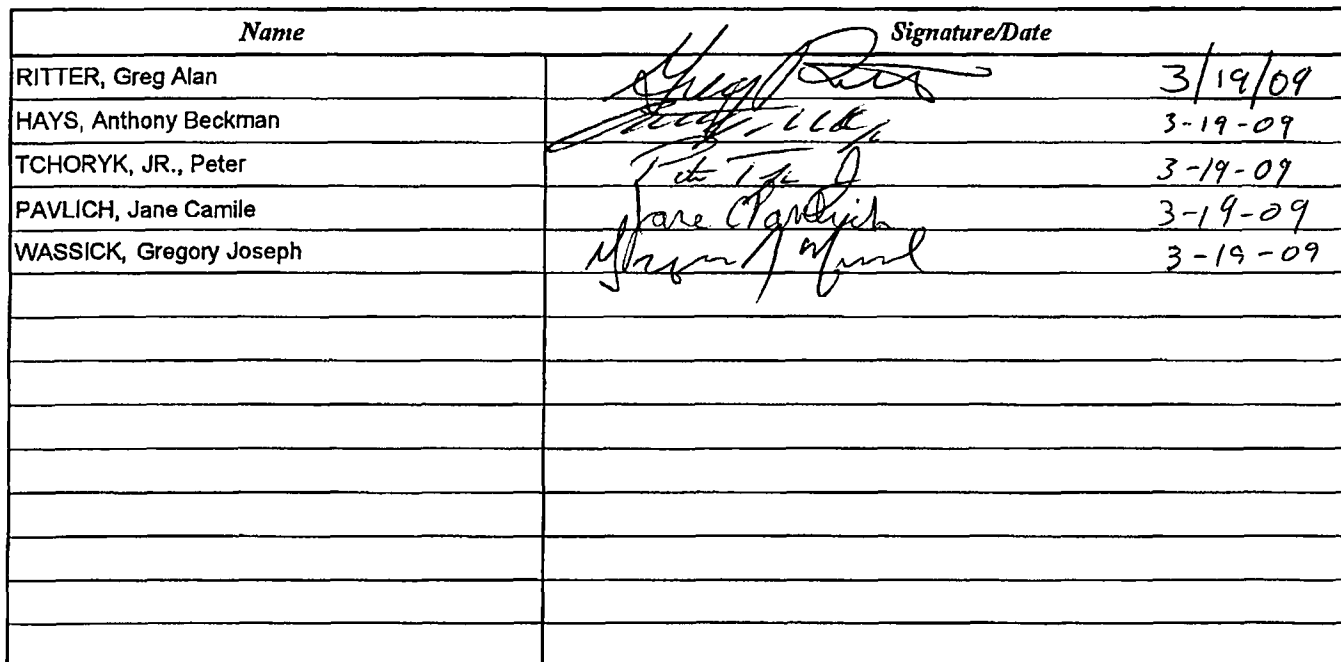 Name Signature/Date
RITTER, Greg Alan Greg Ritter 3/19/09
HAYS, Anthony Beckman 3-19-09
TCHORYK, JR., Peter 3-19-09
PAVLICH, Jane Camile Jane C Pavlich 3-19-09
WASSICK, Gregory Joseph 3-19-09